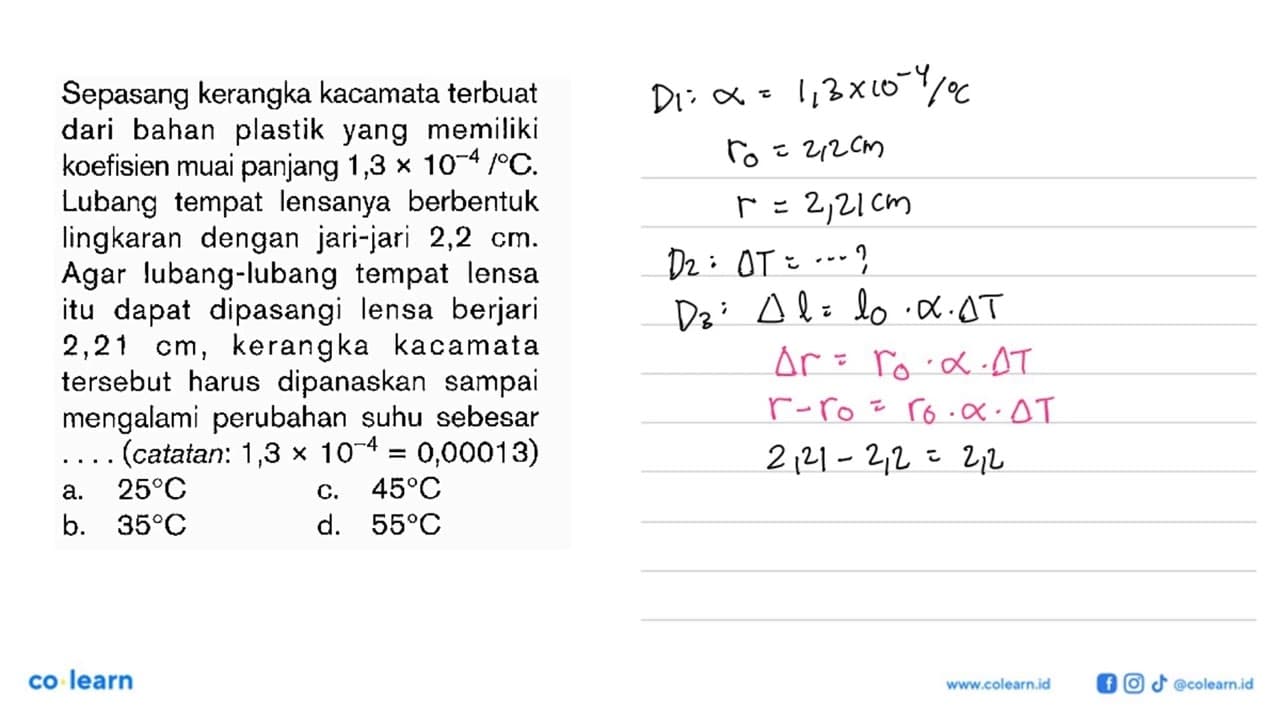 Sepasang kerangka kacamata terbuat
dari bahan plastik yang memiliki
koefisien muai panjang 1,3 × 10⁻⁴ /°C.
Lubang tempat lensanya berbentuk
lingkaran dengan jari-jari 2,2 cm.
Agar lubang-lubang tempat lensa
itu dapat dipasangi lensa berjari
2,21 cm, kerangka kacamata
tersebut harus dipanaskan sampai
mengalami perubahan suhu sebesar
.... (catatan: 1,3 × 10⁻⁴ = 0,00013)
a. 25°C c. 45°C
b. 35°C d. 55°C
D1: α = 1,3×10⁻⁴/°C
r₀ = 2,2 cm
r = 2,21 cm
D2: ΔT = ...?
D3: Δl = l₀ · α · ΔT
Δr = r₀ · α · ΔT
r - r₀ = r₀ · α · ΔT
2,21 - 2,2 = 2,2
co·learn
www.colearn.id
@colearn.id